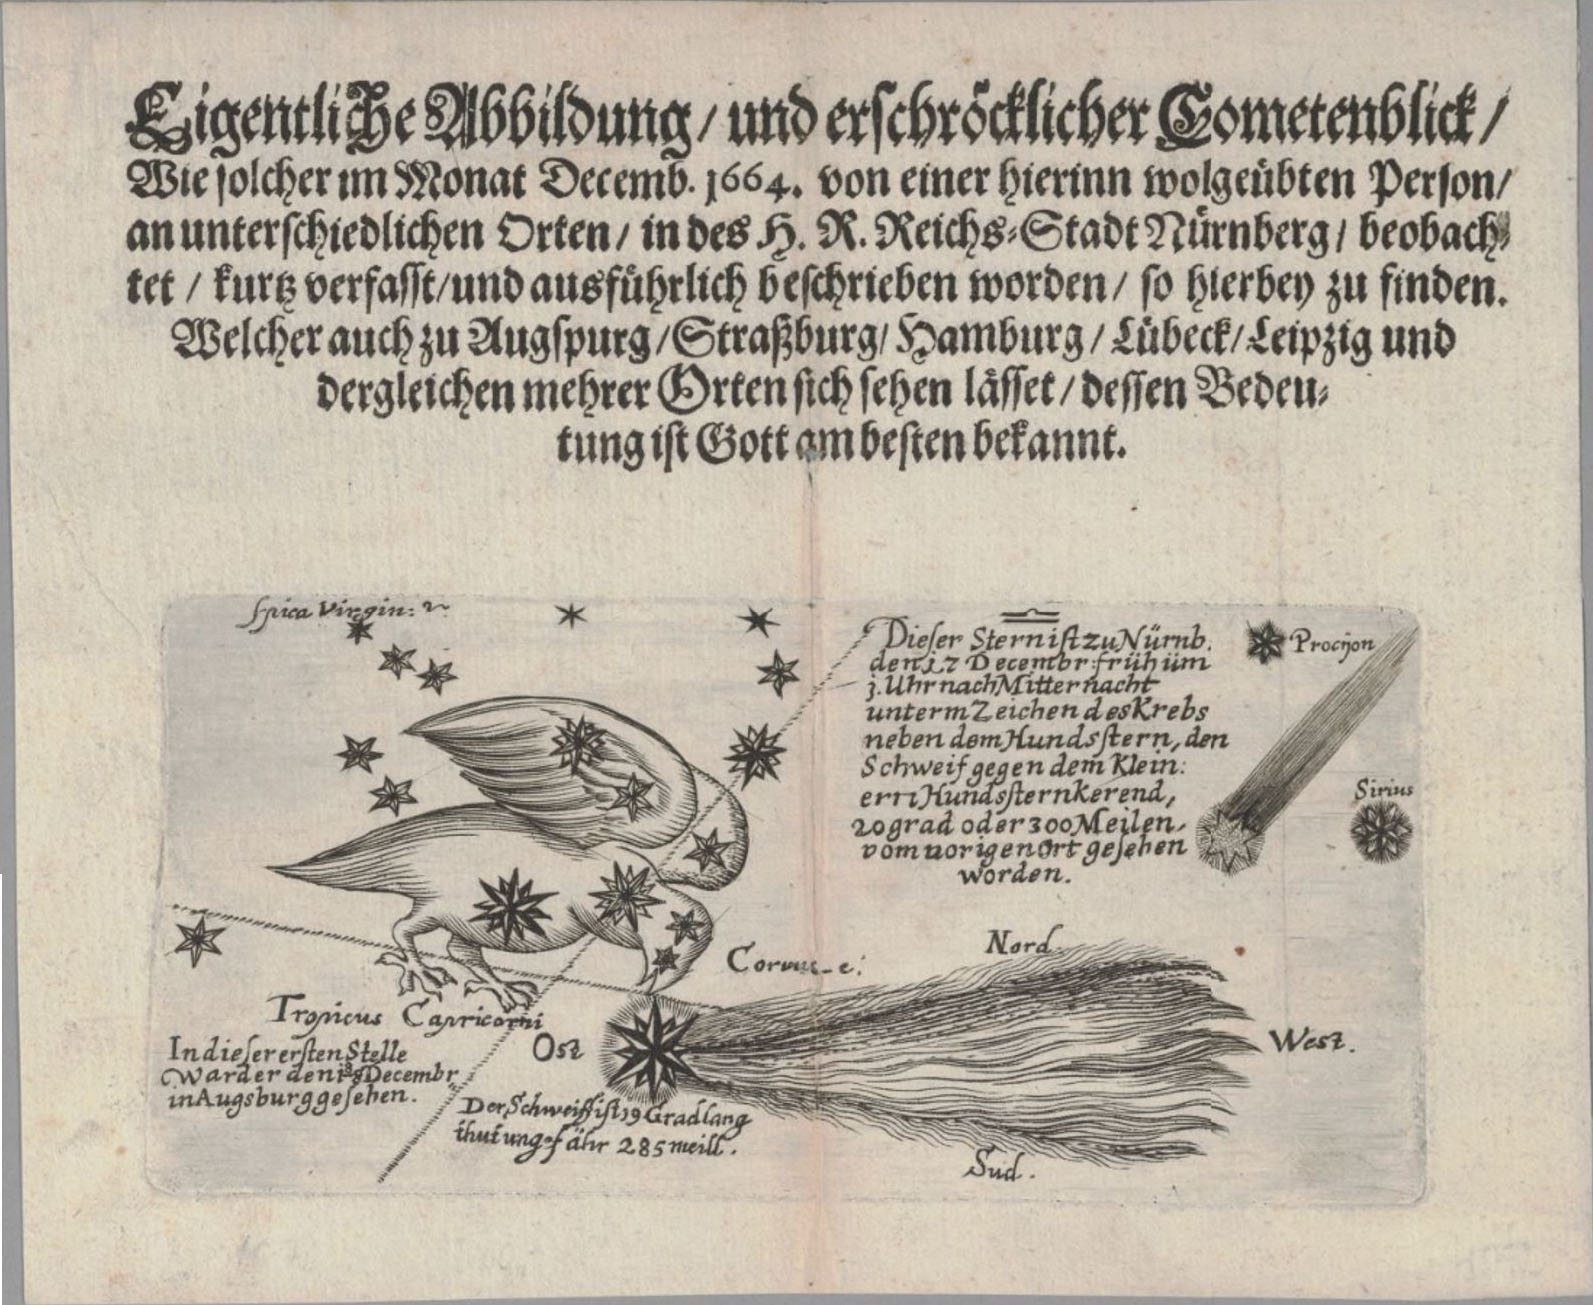 Eigentliche Abbildung / und erschröcklicher Cometenblick /
Wie solcher im Monat Decemb. 1664. von einer hierinn wolgeübten Person /
an unterschiedlichen Orten / in des H. R. Reichs-Stadt Nürnberg / beobach-
tet / kurtz verfasst / und ausführlich beschrieben worden / so hierbey zu finden.
Welcher auch zu Augspurg / Straßburg / Hamburg / Lübeck / Leipzig und
dergleichen mehrer Orten sich sehen lässet / dessen Bedeu-
tung ist Gott am besten bekannt.
Spica Virgin:
♎
Dieser Stern ist zu Nürnb.
den 17 Decembr: früh üm
1. Uhr nach Mitternacht
unterm Zeichen des Krebs
neben dem Hundsstern, den
Schweif gegen dem Klein:
ern Hundsstern kerend,
20 grad oder 300 Meilen,
vom vorigen Ort gesehen
worden.
Procijon
Sirius
Corvus
Nord.
West.
Sud.
Ost
Tropicus Capricorni
In dieser ersten Stelle
war der den Decembr
in Augsburg gesehen.
Der Schweiff ist 19 Grad lang
thut ungefähr 285 meill.